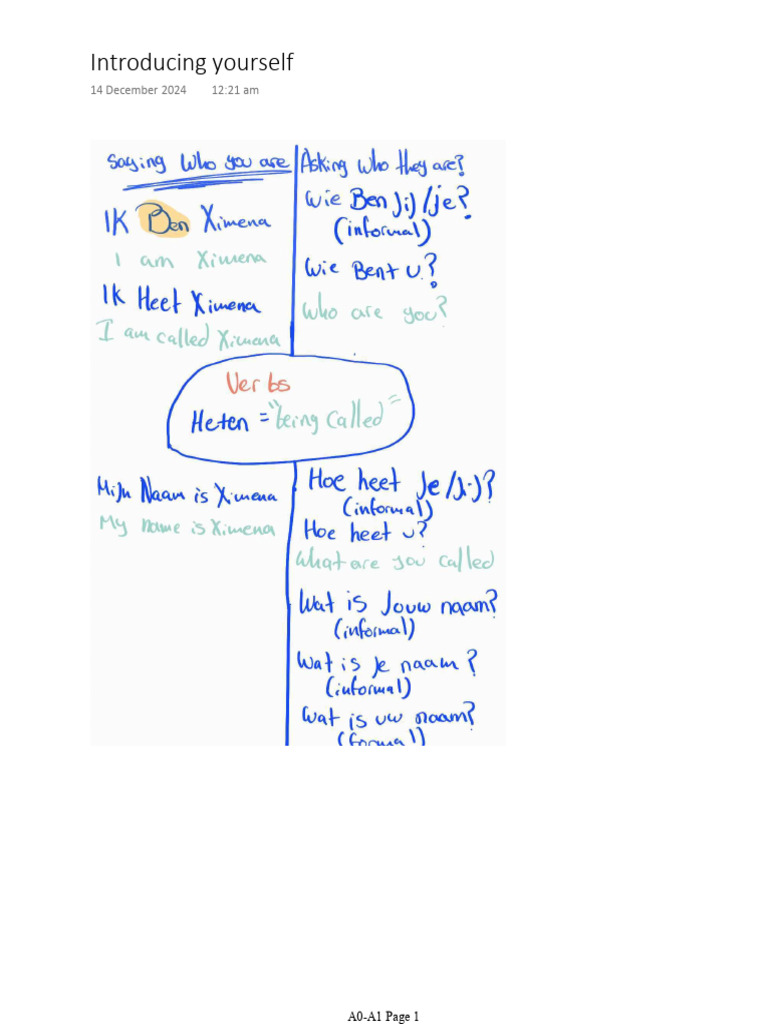 Introducing yourself
14 December 2024 12:21 am
Saying Who you are
IK Ben Ximena
I am Ximena
IK Heet Ximena
I am called Ximena
Asking Who they are?
Wie Ben Jij/je?
(informal)
Wie Bent U?
Who are you?
Verbs
Heten = "being called"
Mijn Naam is Ximena
My name is Ximena
Hoe heet Je/Jij?
(informal)
Hoe heet u?
What are you called
Wat is Jouw naam?
(informal)
Wat is Je naam?
(informal)
Wat is uw naam?
(formal)
A0-A1 Page 1